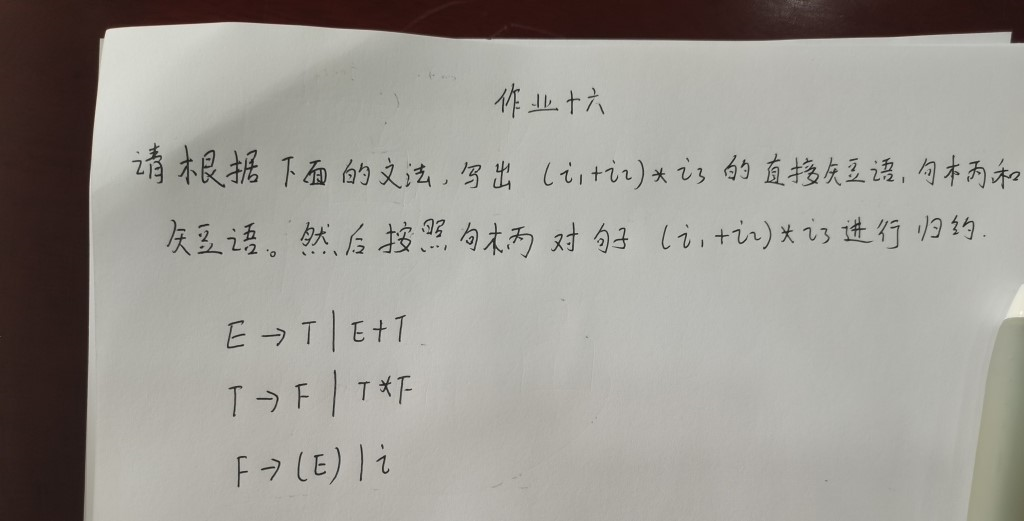 作业十六
请根据下面的文法,写出 (i₁+i₂)*i₃ 的直接短语,句柄和
短语。然后按照句柄对句子 (i₁+i₂)*i₃ 进行归约.
E → T | E+T
T → F | T*F
F → (E) | i